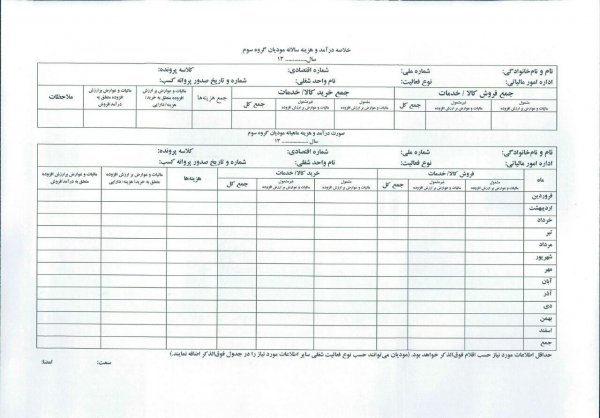 خلاصه درآمد و هزینه سالانه مودیان گروه سوم
سال............. ۱۳
نام و نام‌خانوادگی: شماره ملی: شماره اقتصادی: کلاسه پرونده:
اداره امور مالیاتی: نوع فعالیت: نام واحد شغلی: شماره و تاریخ صدور پروانه کسب:
جمع فروش کالا / خدمات جمع خرید کالا / خدمات جمع هزینه‌ها مالیات و عوارض بر ارزش افزوده متعلق به خرید/هزینه/ دارایی مالیات و عوارض بر ارزش افزوده متعلق به درآمد فروش ملاحظات
مشمول مالیات و عوارض بر ارزش افزوده غیرمشمول مالیات و عوارض بر ارزش افزوده جمع کل مشمول مالیات و عوارض بر ارزش افزوده غیرمشمول مالیات و عوارض بر ارزش افزوده جمع کل
صورت درآمد و هزینه ماهیانه مودیان گروه سوم
سال............. ۱۳
نام و نام‌خانوادگی: شماره ملی: شماره اقتصادی: کلاسه پرونده:
اداره امور مالیاتی: نوع فعالیت: نام واحد شغلی: شماره و تاریخ صدور پروانه کسب:
ماه فروش کالا/ خدمات خرید کالا/ خدمات هزینه‌ها مالیات و عوارض بر ارزش افزوده متعلق به خرید/ هزینه/ دارایی مالیات و عوارض بر ارزش افزوده متعلق به درآمد فروش
مشمول مالیات و عوارض بر ارزش افزوده غیرمشمول مالیات و عوارض بر ارزش افزوده جمع کل مشمول مالیات و عوارض بر ارزش افزوده غیرمشمول مالیات و عوارض بر ارزش افزوده جمع کل
فروردین
اردیبهشت
خرداد
تیر
مرداد
شهریور
مهر
آبان
آذر
دی
بهمن
اسفند
جمع
حداقل اطلاعات مورد نیاز حسب اقلام فوق‌الذکر خواهد بود. (مودیان می‌توانند حسب نوع فعالیت شغلی سایر اطلاعات مورد نیاز را در جدول فوق‌الذکر اضافه نمایند.)
سمت: امضا: